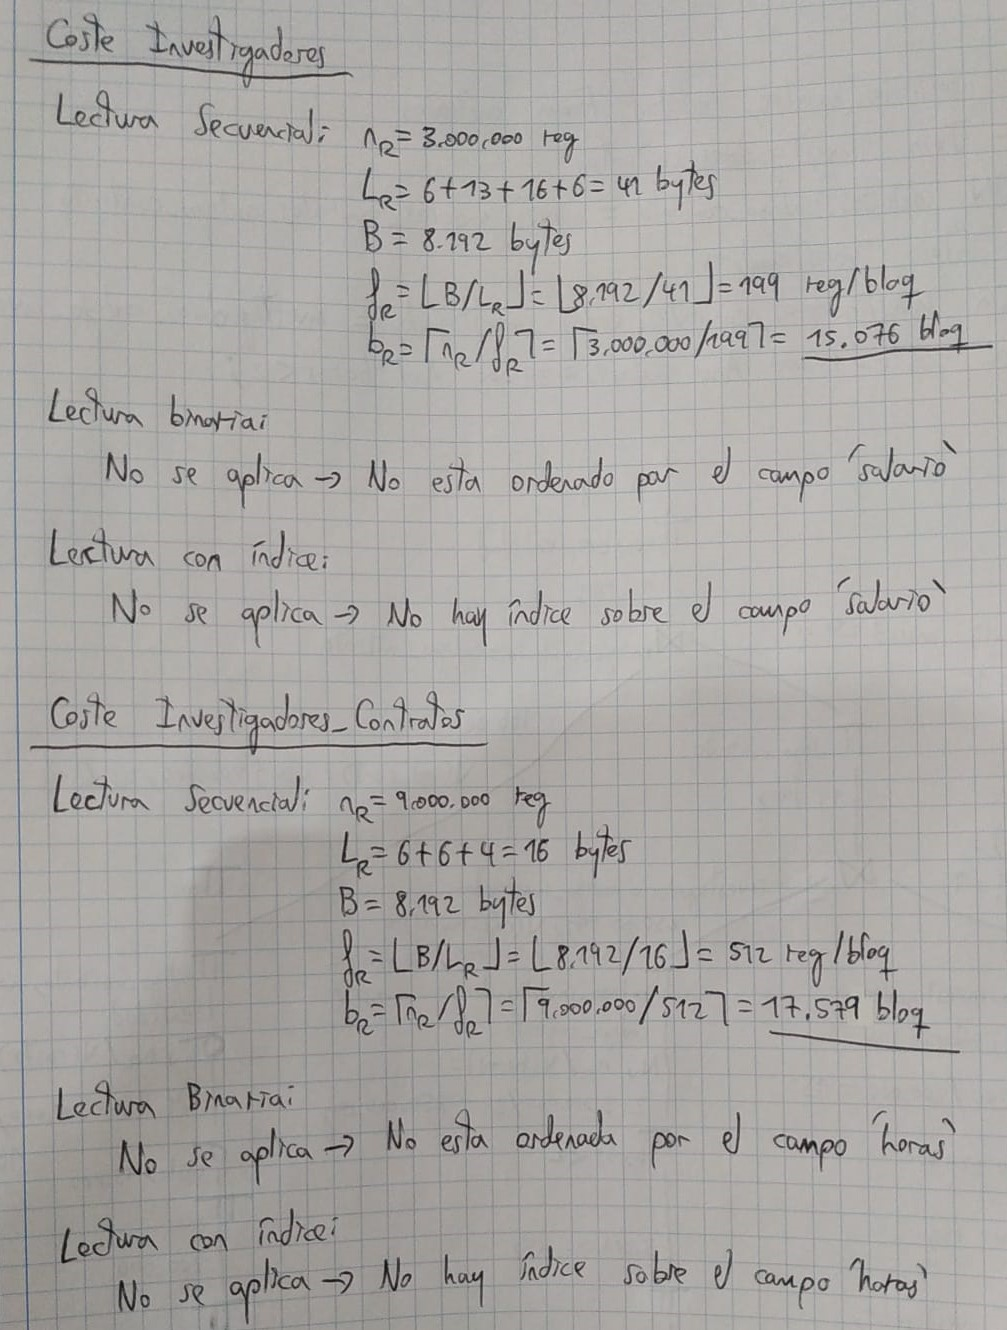 Coste Investigadores
Lectura Secuencial: n_R = 3.000.000 reg
L_R = 6+13+16+6 = 41 bytes
B = 8.192 bytes
f_R = ⌊B/L_R⌋ = ⌊8.192/41⌋ = 199 reg/bloq
b_R = ⌈n_R/f_R⌉ = ⌈3.000.000/199⌉ = 15.076 bloq
Lectura binaria:
No se aplica → No esta ordenado por el campo ´salario`
Lectura con índice:
No se aplica → No hay índice sobre el campo ´salario`
Coste Investigadores_Contratos
Lectura Secuencial: n_R = 9.000.000 reg
L_R = 6+6+4 = 16 bytes
B = 8.192 bytes
f_R = ⌊B/L_R⌋ = ⌊8.192/16⌋ = 512 reg/bloq
b_R = ⌈n_R/f_R⌉ = ⌈9.000.000/512⌉ = 17.579 bloq
Lectura Binaria:
No se aplica → No esta ordenada por el campo ´horas`
Lectura con índice:
No se aplica → No hay índice sobre el campo ´horas`